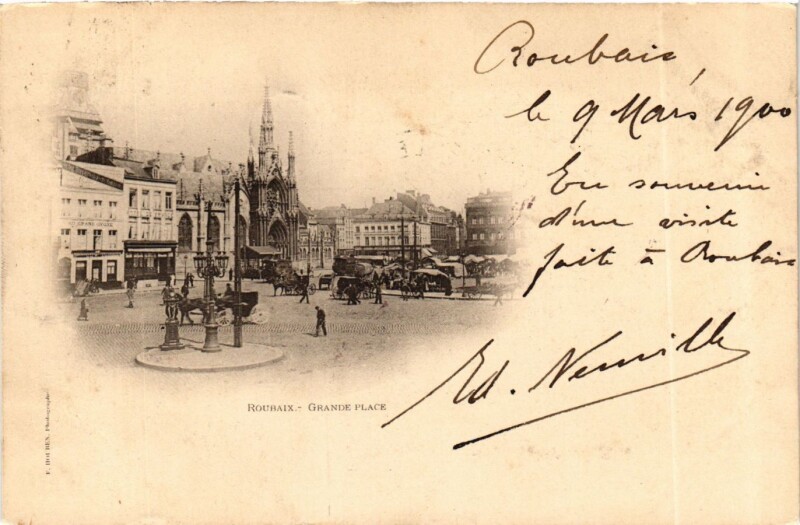 Roubaix,
le 9 Mars 1900
En souvenir
d'une visite
faite à Roubaix
Ed. Neuville
ROUBAIX.- GRANDE PLACE
Photographe